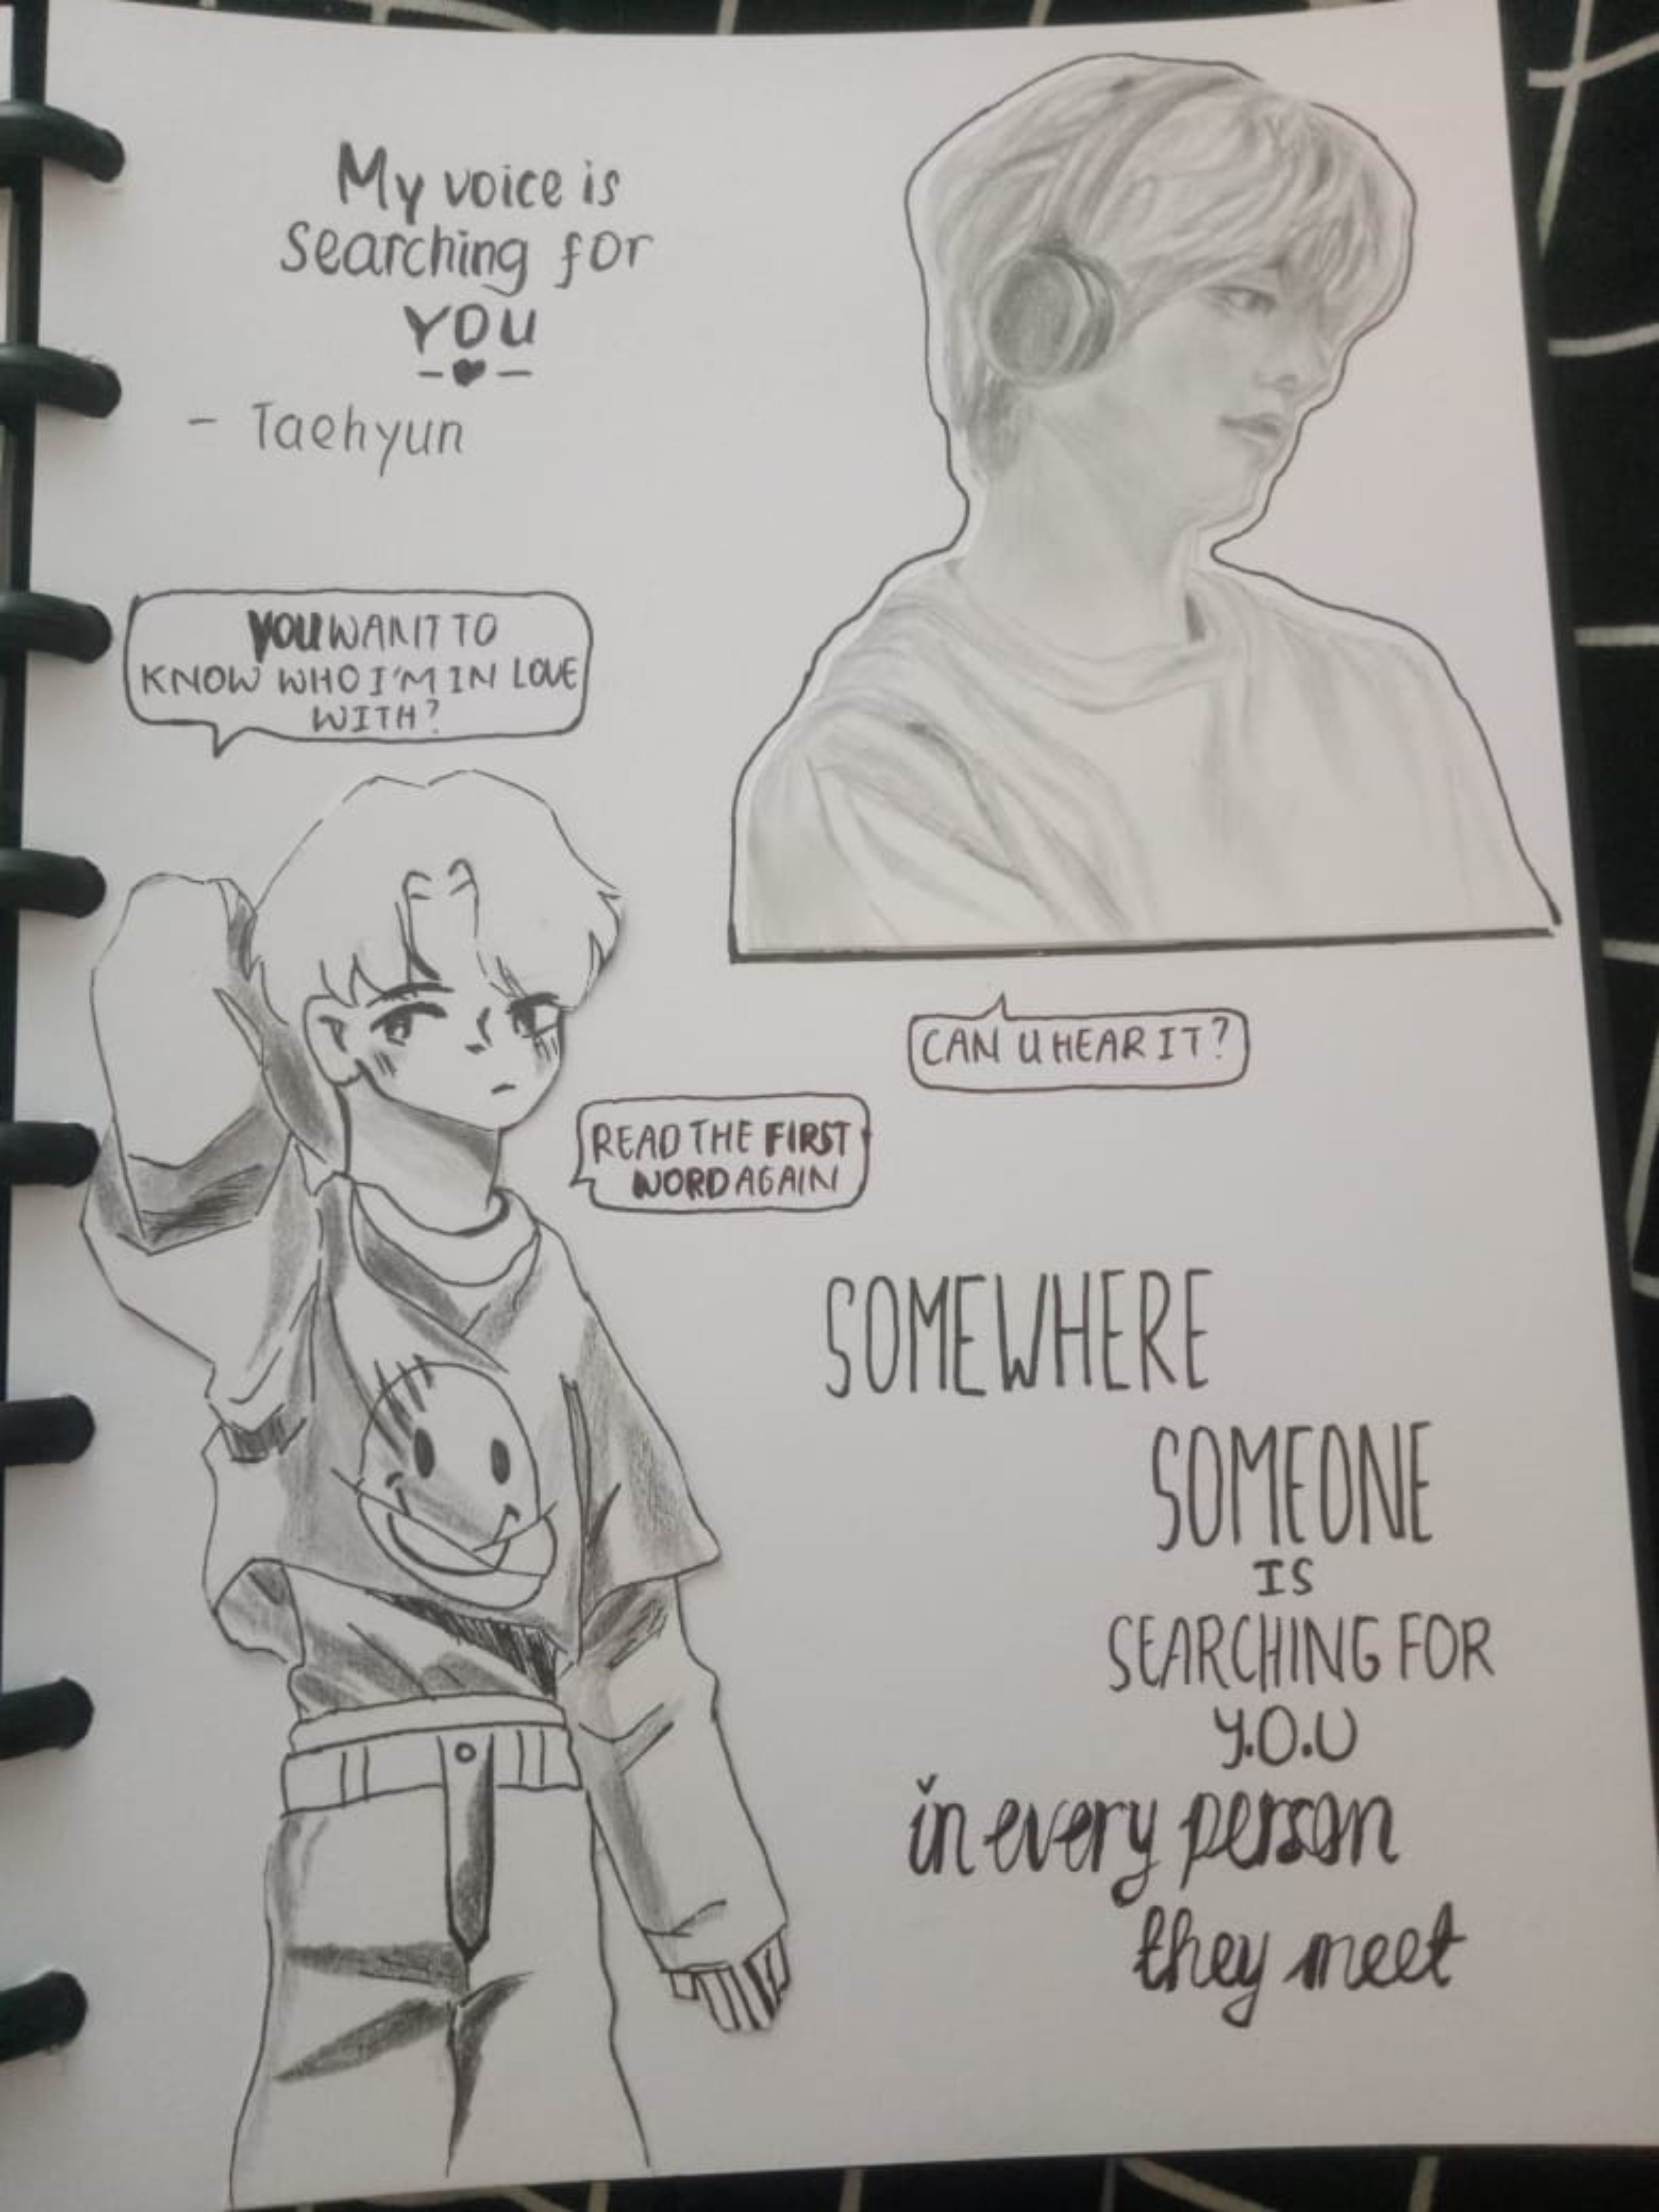 My voice is
searching for
YOU
- Taehyun
YOU WANT TO
KNOW WHO I'M IN LOVE
WITH?
CAN U HEAR IT?
READ THE FIRST
WORD AGAIN
SOMEWHERE
SOMEONE
IS
SEARCHING FOR
Y.O.U
in every person
they meet